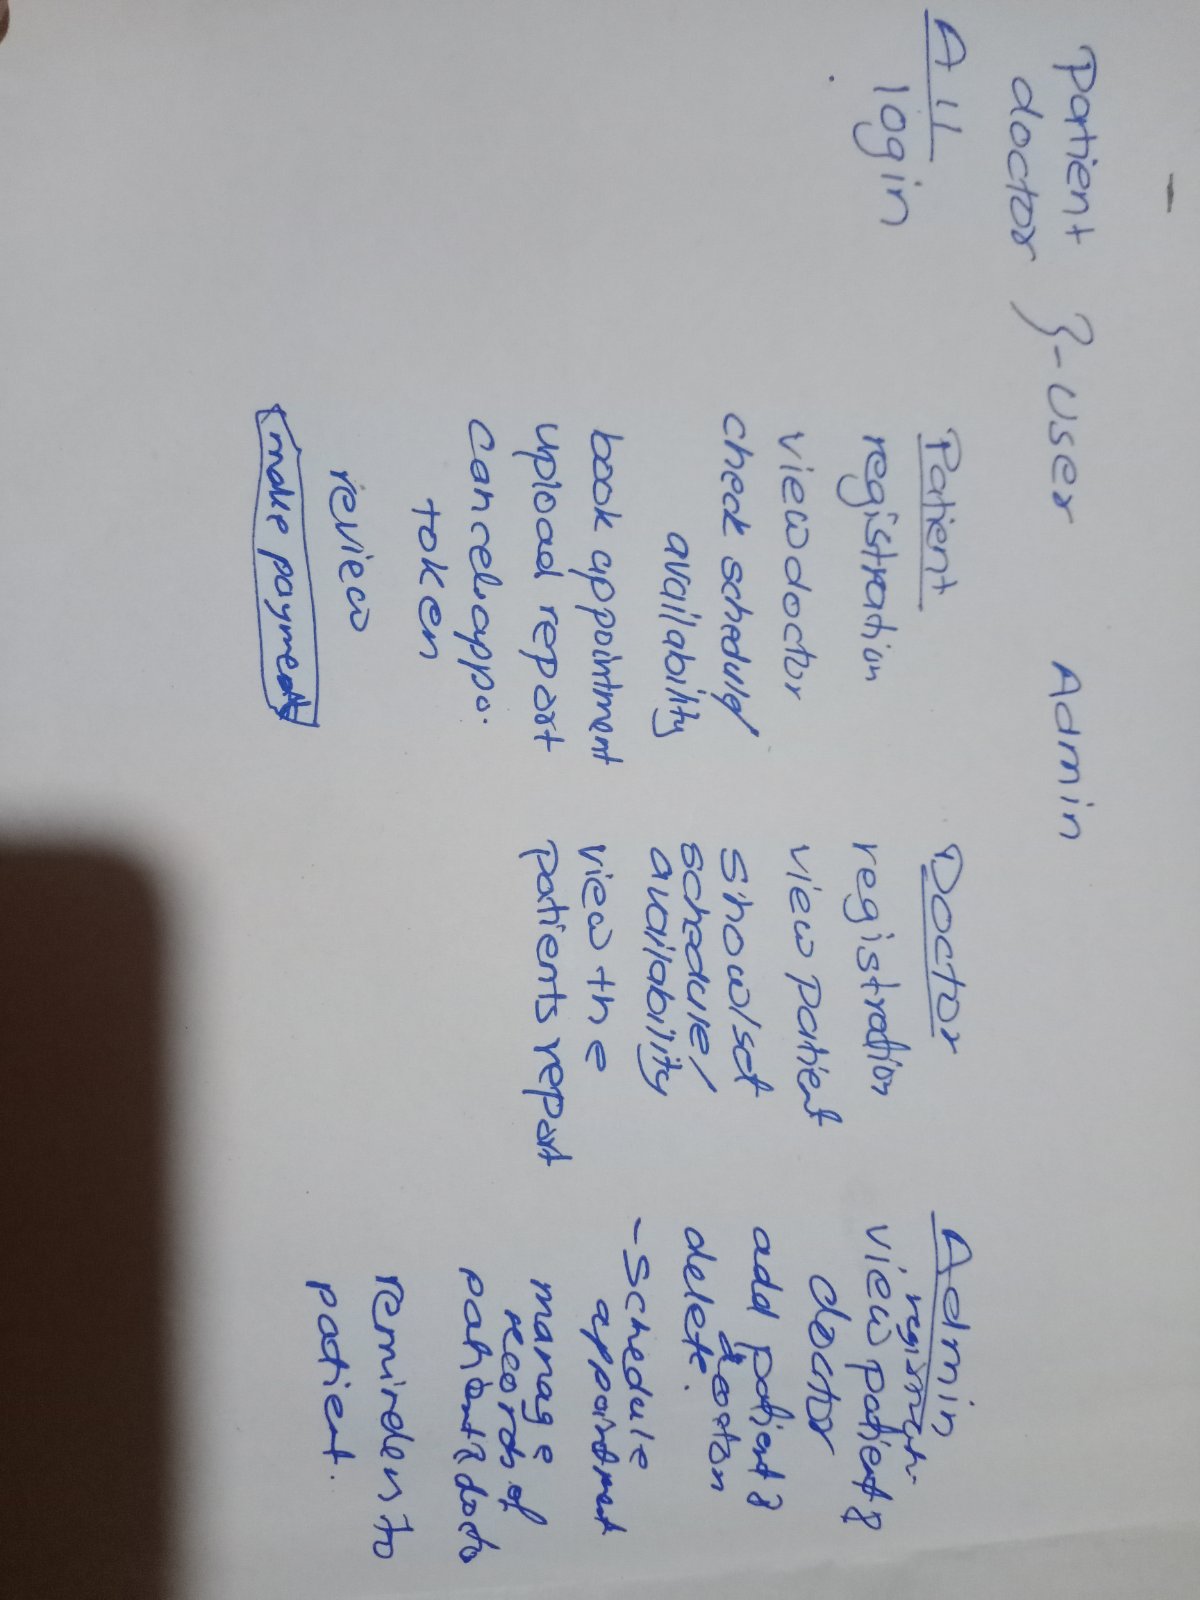 Patient
doctor }-user Admin
All
login
Patient
registration
view doctor
check schedule/
availability
book appointment
upload report
cancel appo.
token
review
make payment
Doctor
registration
view patient
show/set
schedule/
availability
view the
patients report
Admin
view patient &
doctor
add patient &
doctor
delete.
-Schedule
appointment
manage
records of
patient & docto
reminder to
patient.